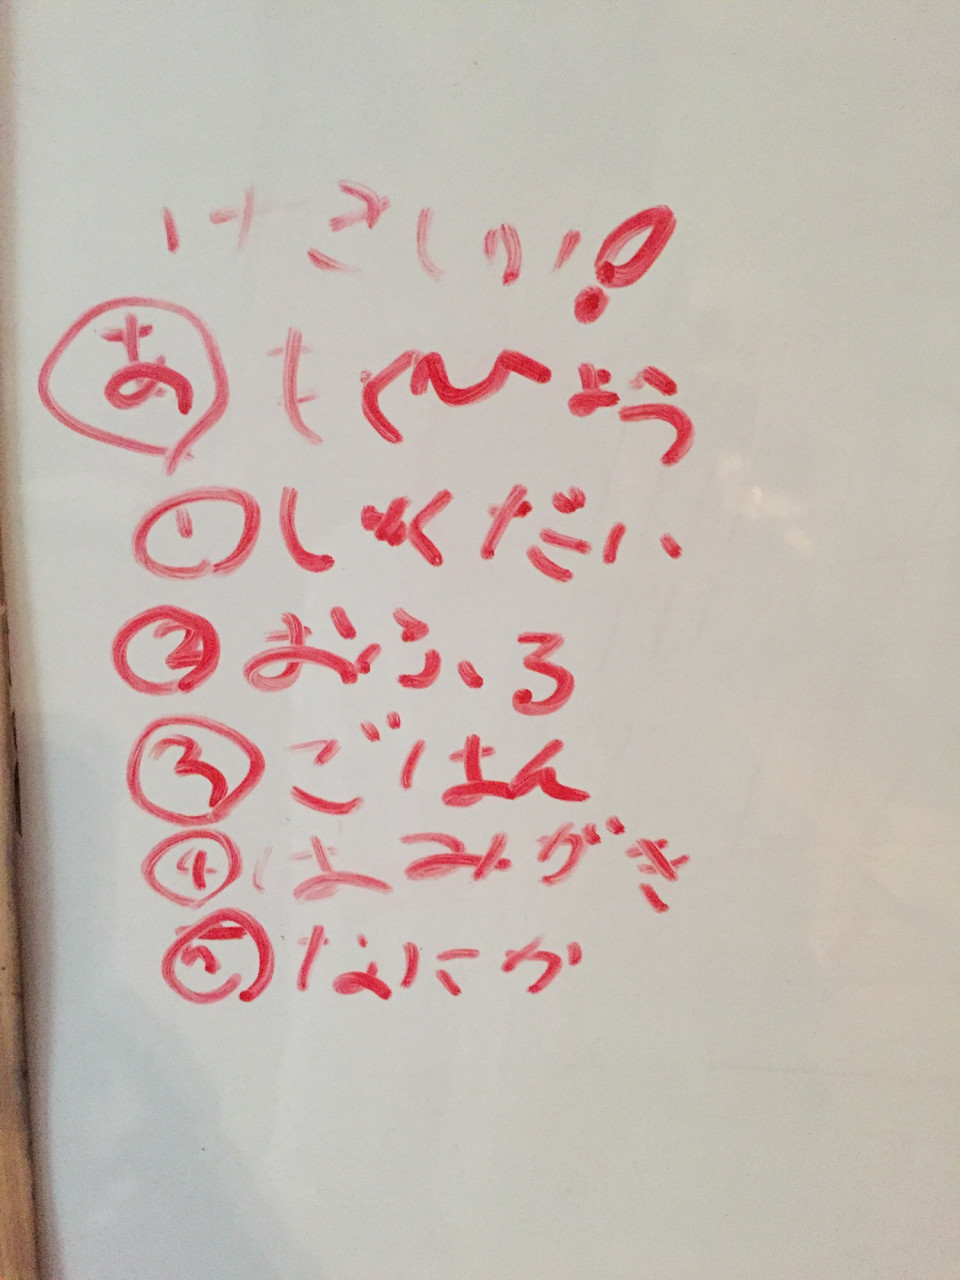 あ もくひょう
① しゅくだい
② おふろ
③ ごはん
④ はみがき
⑤ なにか